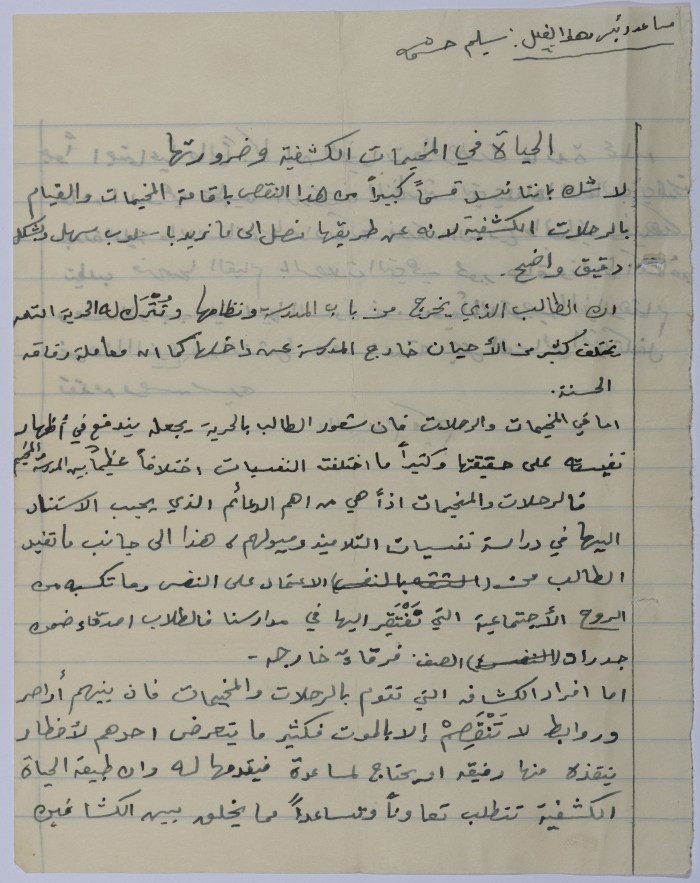 مساعد رئيس وهدا الفيل: سليم حشمه
الحياة في المخيمات الكشفية وضرورتها
لا شك باننا نسد قسماً كبيراً من هذا النقص باقامة المخيمات والقيام
بالرحلات الكشفية لانه عن طريقها نصل الى ما نريد باسلوب سهل وشكل
دقيق واضح.
ان الطالب الذي يخرج من باب المدرسة ونظامها وتُترَك له الحرية التامه
تختلف كثير من الأحيان خارج المدرسة عن داخلها كما ان معاملة رفاقه
الحسنة.
اما في المخيمات والرحلات فان شعور الطالب بالحرية يجعله يندفع في أظهار
نفيسته على حقيقتها وكثيراً ما اختلفت النفسيات اختلافاً عظيماً بين المدرسة والمخيم
فالرحلات والمخيمات اذاً هي من اهم الدعائم الذي يجب الاستناد
اليها في دراسة نفسيات التلاميذ وميولهم، هذا الى جانب ما تفيد
الطالب من (الثقه بالنفس) الاعتماد على النفس وما تكسبه من
الروح الأجتماعية التي تَفْتَقِر اليها في مدارسنا فالطلاب اصدقاء ضمن
جدران (النفس) الصف فرقاء خارجه -
اما افراد الكشافه التي تقوم بالرحلات والمخيمات فان بينهم أواصر
وروابط لا تَنْفَصِمْ إلا بالموت فكثير ما يتعرض احدهم لأخطار
ينقذه منها رفيقه او يحتاج لمساعدة فيقدمها له وان طبيعة الحياة
الكشفية تتطلب تعاوناً وتساعداً مما يخلق بين الكشافين